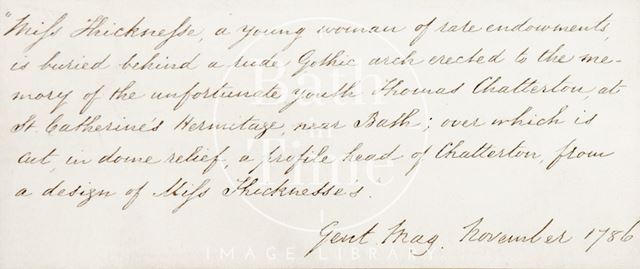 "Miss Thicknesse, a young woman of rare endowments,
is buried behind a rude Gothic arch erected to the me-
mory of the unfortunate youth Thomas Chatterton at
St. Catherine's Hermitage, near Bath; over which is
cut, in dome relief, a profile head of Chatterton, from
a design of Miss Thicknesse's.
Gent. Mag. November 1786
Bath
in
Time
IMAGE LIBRARY